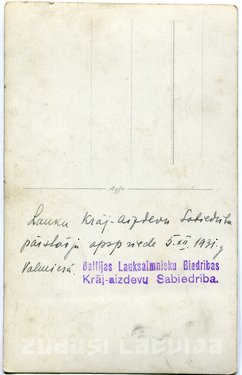 Lauku Krāj-Aizdevu Sabiedrību
pārstāvju apspriede 5.XII 1931.g
Valmierā Baltijas Lauksaimnieku Biedrības
Krāj-aizdevu Sabiedrība.
ZUDUSI LATVIJA